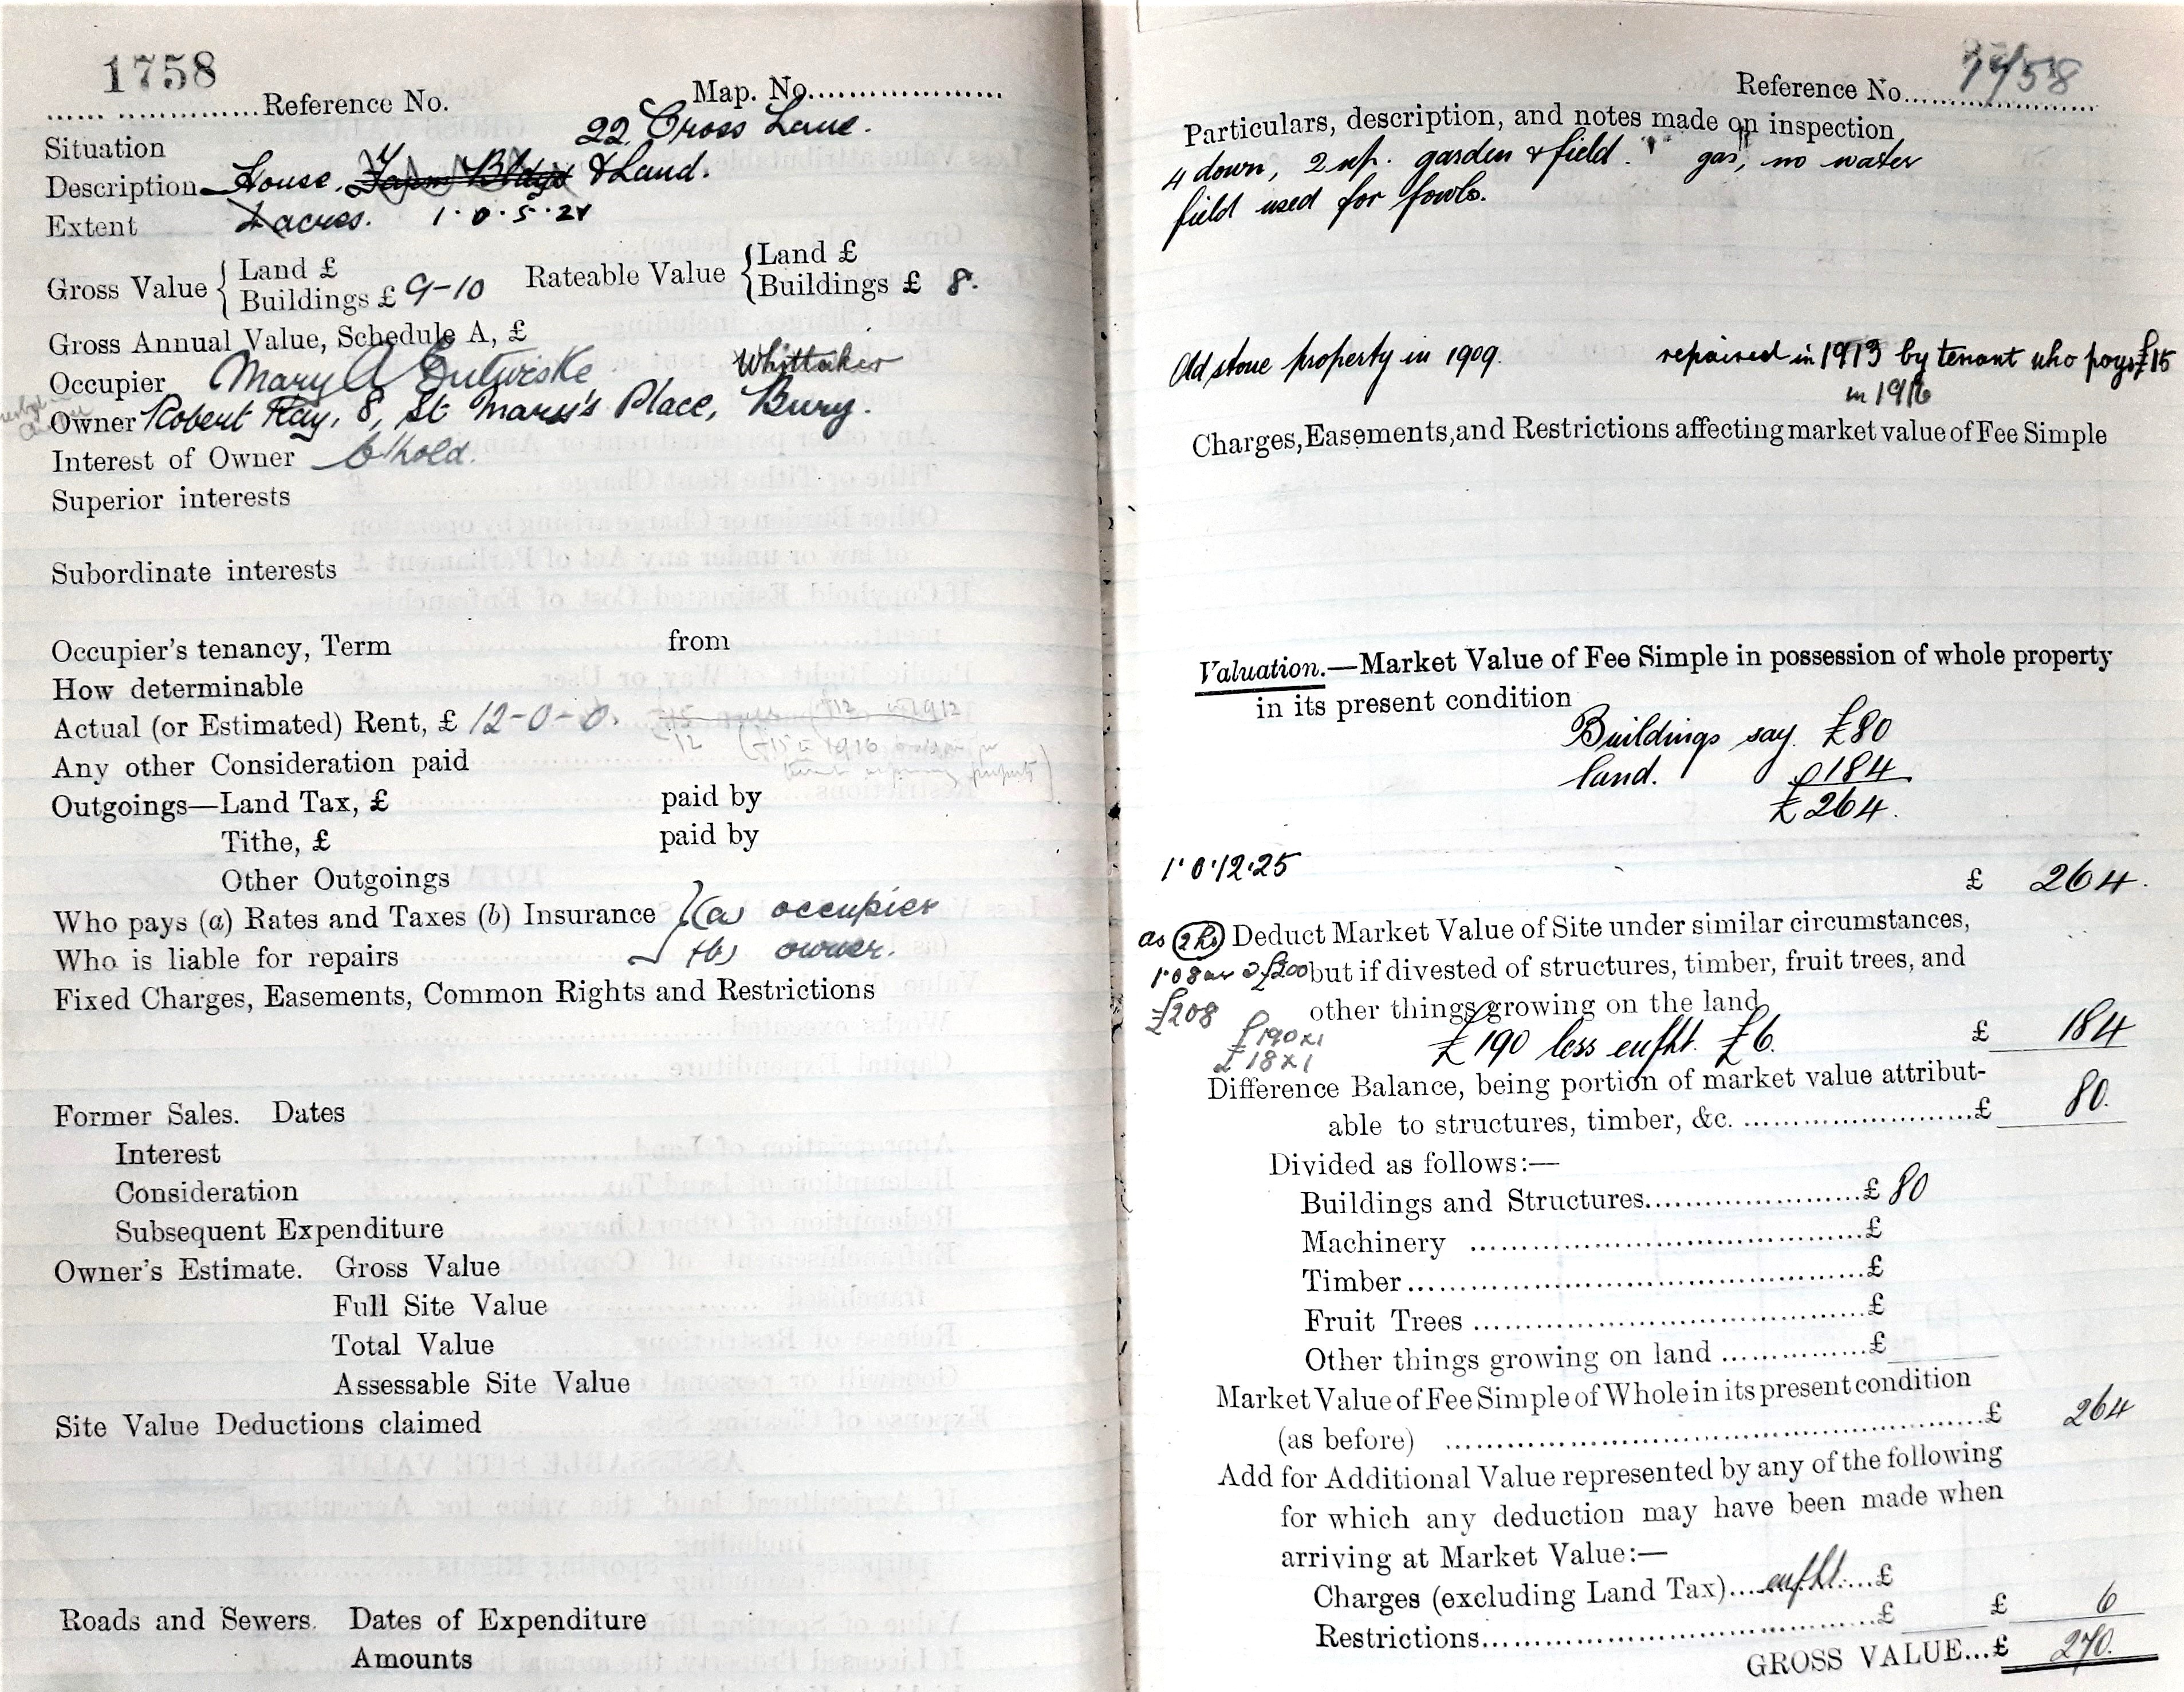 1758
...... ..............Reference No. Map. No....................
Situation 22, Cross Lane.
Description House. Farm Bldgs & Land.
Extent 2 acres. 1·0·5·24
Gross Value { Land £ Rateable Value { Land £
Buildings £ 9-10 Buildings £ 8.
Gross Annual Value, Schedule A, £
Occupier Mary A Entwisle Whittaker
Owner Robert Kay, 8, St Mary's Place, Bury.
Interest of Owner C/hold.
Superior interests
Subordinate interests
Occupier's tenancy, Term from
How determinable
Actual (or Estimated) Rent, £ 12-0-0. £12 in 1912
12 (£15 in 1916
Any other Consideration paid
Outgoings—Land Tax, £ paid by
Tithe, £ paid by
Other Outgoings
Who pays (a) Rates and Taxes (b) Insurance } (a) occupier
Who is liable for repairs (b) owner.
Fixed Charges, Easements, Common Rights and Restrictions
Former Sales. Dates
Interest
Consideration
Subsequent Expenditure
Owner's Estimate. Gross Value
Full Site Value
Total Value
Assessable Site Value
Site Value Deductions claimed
Roads and Sewers. Dates of Expenditure
Amounts
Reference No. 1758
Particulars, description, and notes made on inspection
4 down, 2 up. garden & field. gas, no water
field used for fowls.
Old stone property in 1909. repaired in 1913 by tenant who pays £15
in 1916
Charges, Easements, and Restrictions affecting market value of Fee Simple
Valuation.—Market Value of Fee Simple in possession of whole property
in its present condition
Buildings say. £80
land. 184
£264.
1·0·12·25
£ 264.
as Deduct Market Value of Site under similar circumstances,
@ £200 but if divested of structures, timber, fruit trees, and
£208 other things growing on the land
£190 x 1
£18 x 1
£190 less enfht. £6. £ 184
Difference Balance, being portion of market value attribut-
able to structures, timber, &c. ......................£ 80.
Divided as follows:—
Buildings and Structures......................£ 80
Machinery ......................£
Timber......................£
Fruit Trees ......................£
Other things growing on land ...............£
Market Value of Fee Simple of Whole in its present condition
(as before) ......................£ 264
Add for Additional Value represented by any of the following
for which any deduction may have been made when
arriving at Market Value:—
Charges (excluding Land Tax)....enfht....£
Restrictions......................£ £ 6
GROSS VALUE...£ 270.